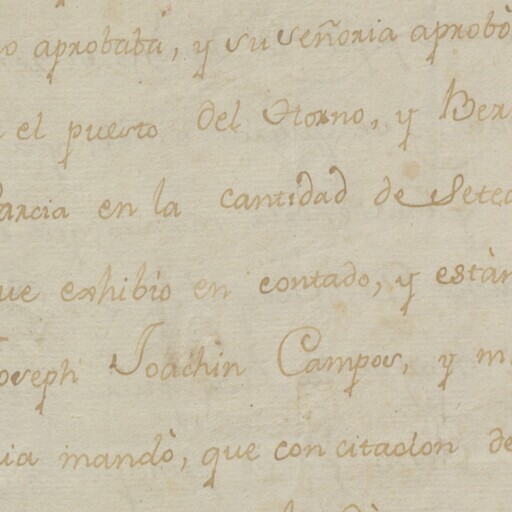 aprobaba, y su señoria aprobò
el puesto del Horno, y Ber
Garcia en la cantidad de Setec
que exhibio en contado, y estàn
Joseph Joachin Campos, y m
ia mandò, que con citacion de